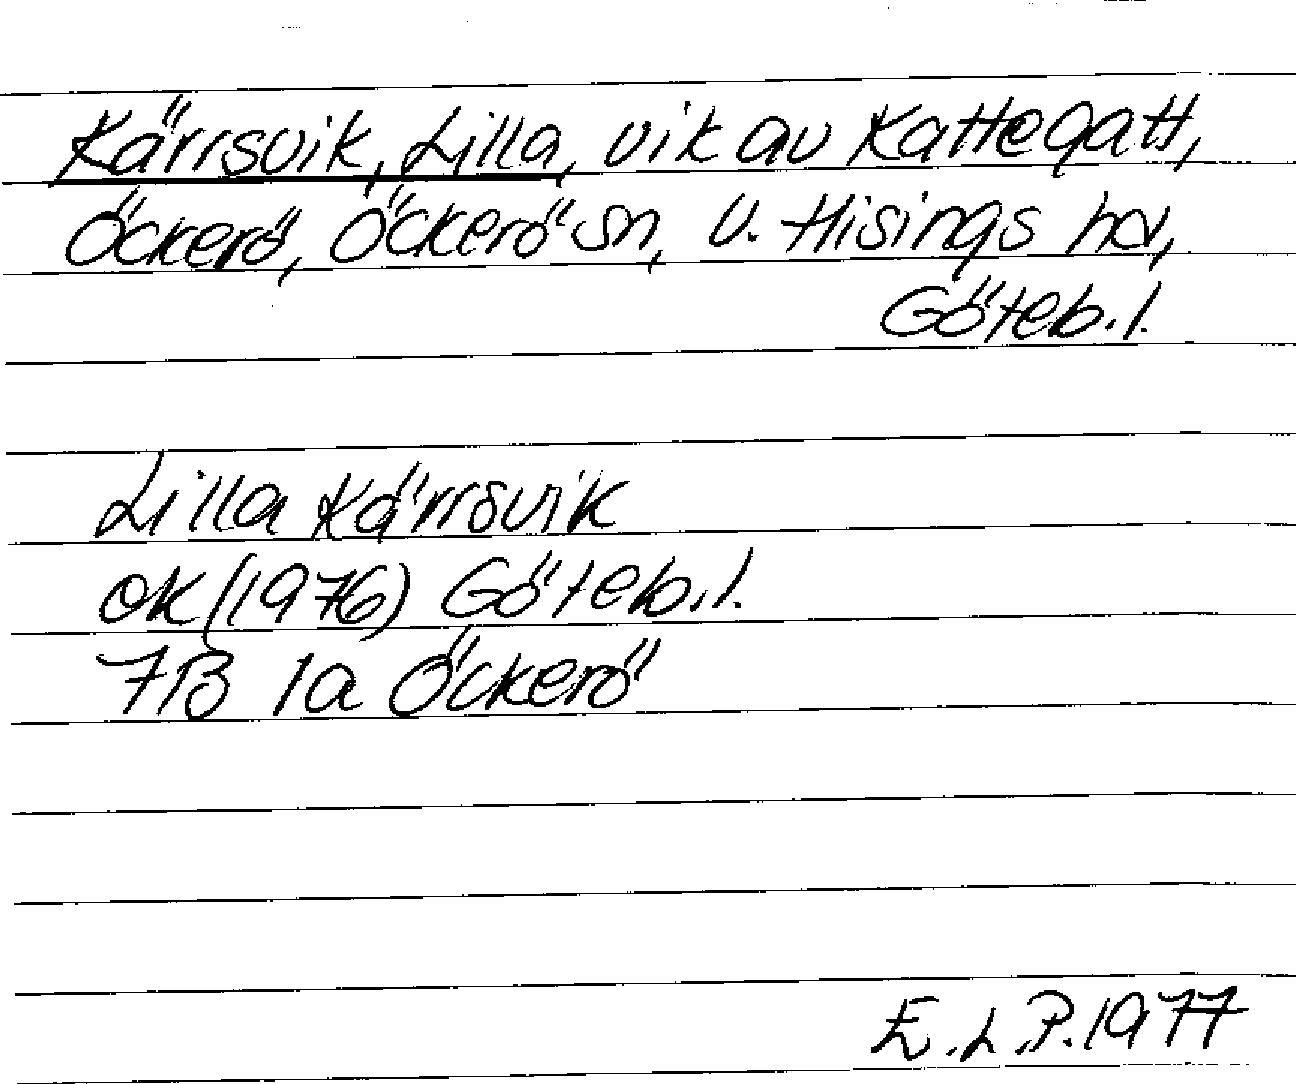 Kärrsvik, Lilla, vik av Kattegatt,
Öckerö, Öckerö sn, V. Hisings hd,
Göteb.l.
Lilla Kärrsvik
ek (1976) Göteb.l.
7B 1a Öckerö
E.L.P. 1977